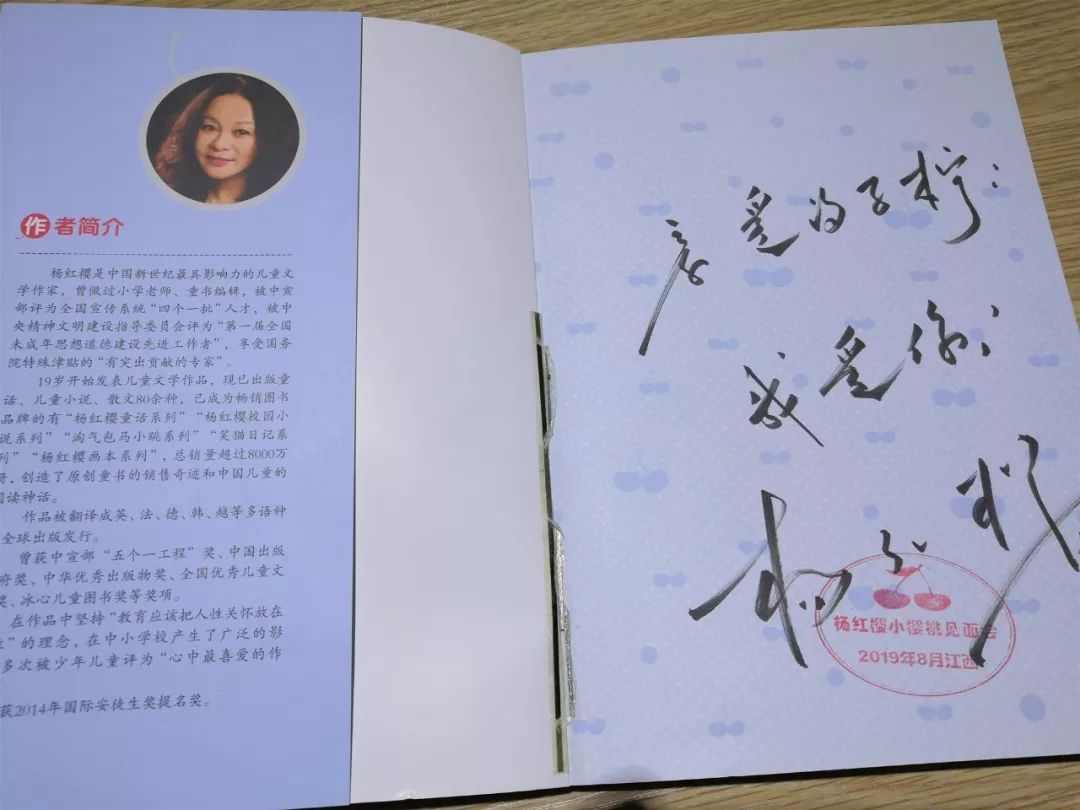 作者简介
杨红樱是中国新世纪最具影响力的儿童文
学作家，曾做过小学老师、童书编辑，被中宣
部评为全国宣传系统“四个一批”人才，被中
央精神文明建设指导委员会评为“第一届全国
未成年思想道德建设先进工作者”，享受国务
院特殊津贴的“有突出贡献的专家”。
19岁开始发表儿童文学作品，现已出版童
话、儿童小说、散文80余种，已成为畅销图书
品牌的有“杨红樱童话系列”“杨红樱校园小
说系列”“淘气包马小跳系列”“笑猫日记系
列”“杨红樱画本系列”，总销量超过8000万
册，创造了原创童书的销售奇迹和中国儿童的
阅读神话。
作品被翻译成英、法、德、韩、越等多语种
全球出版发行。
曾获中宣部“五个一工程”奖、中国出版
府奖、中华优秀出版物奖、全国优秀儿童文
奖、冰心儿童图书奖等奖项。
在作品中坚持“教育应该把人性关怀放在
”的理念，在中小学校产生了广泛的影
多次被少年儿童评为“心中最喜爱的作
获2014年国际安徒生奖提名奖。
亲爱的子柠：
我爱你！
杨红樱
杨红樱小樱桃见面会
2019年8月江西